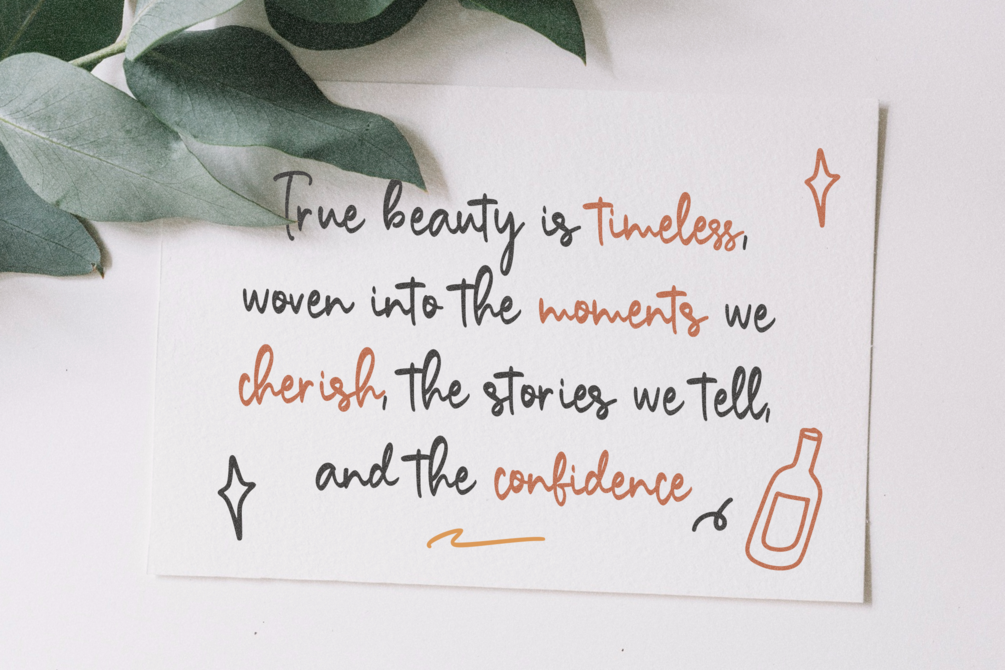 True beauty is timeless,
woven into the moments we
cherish, the stories we tell,
and the confidence